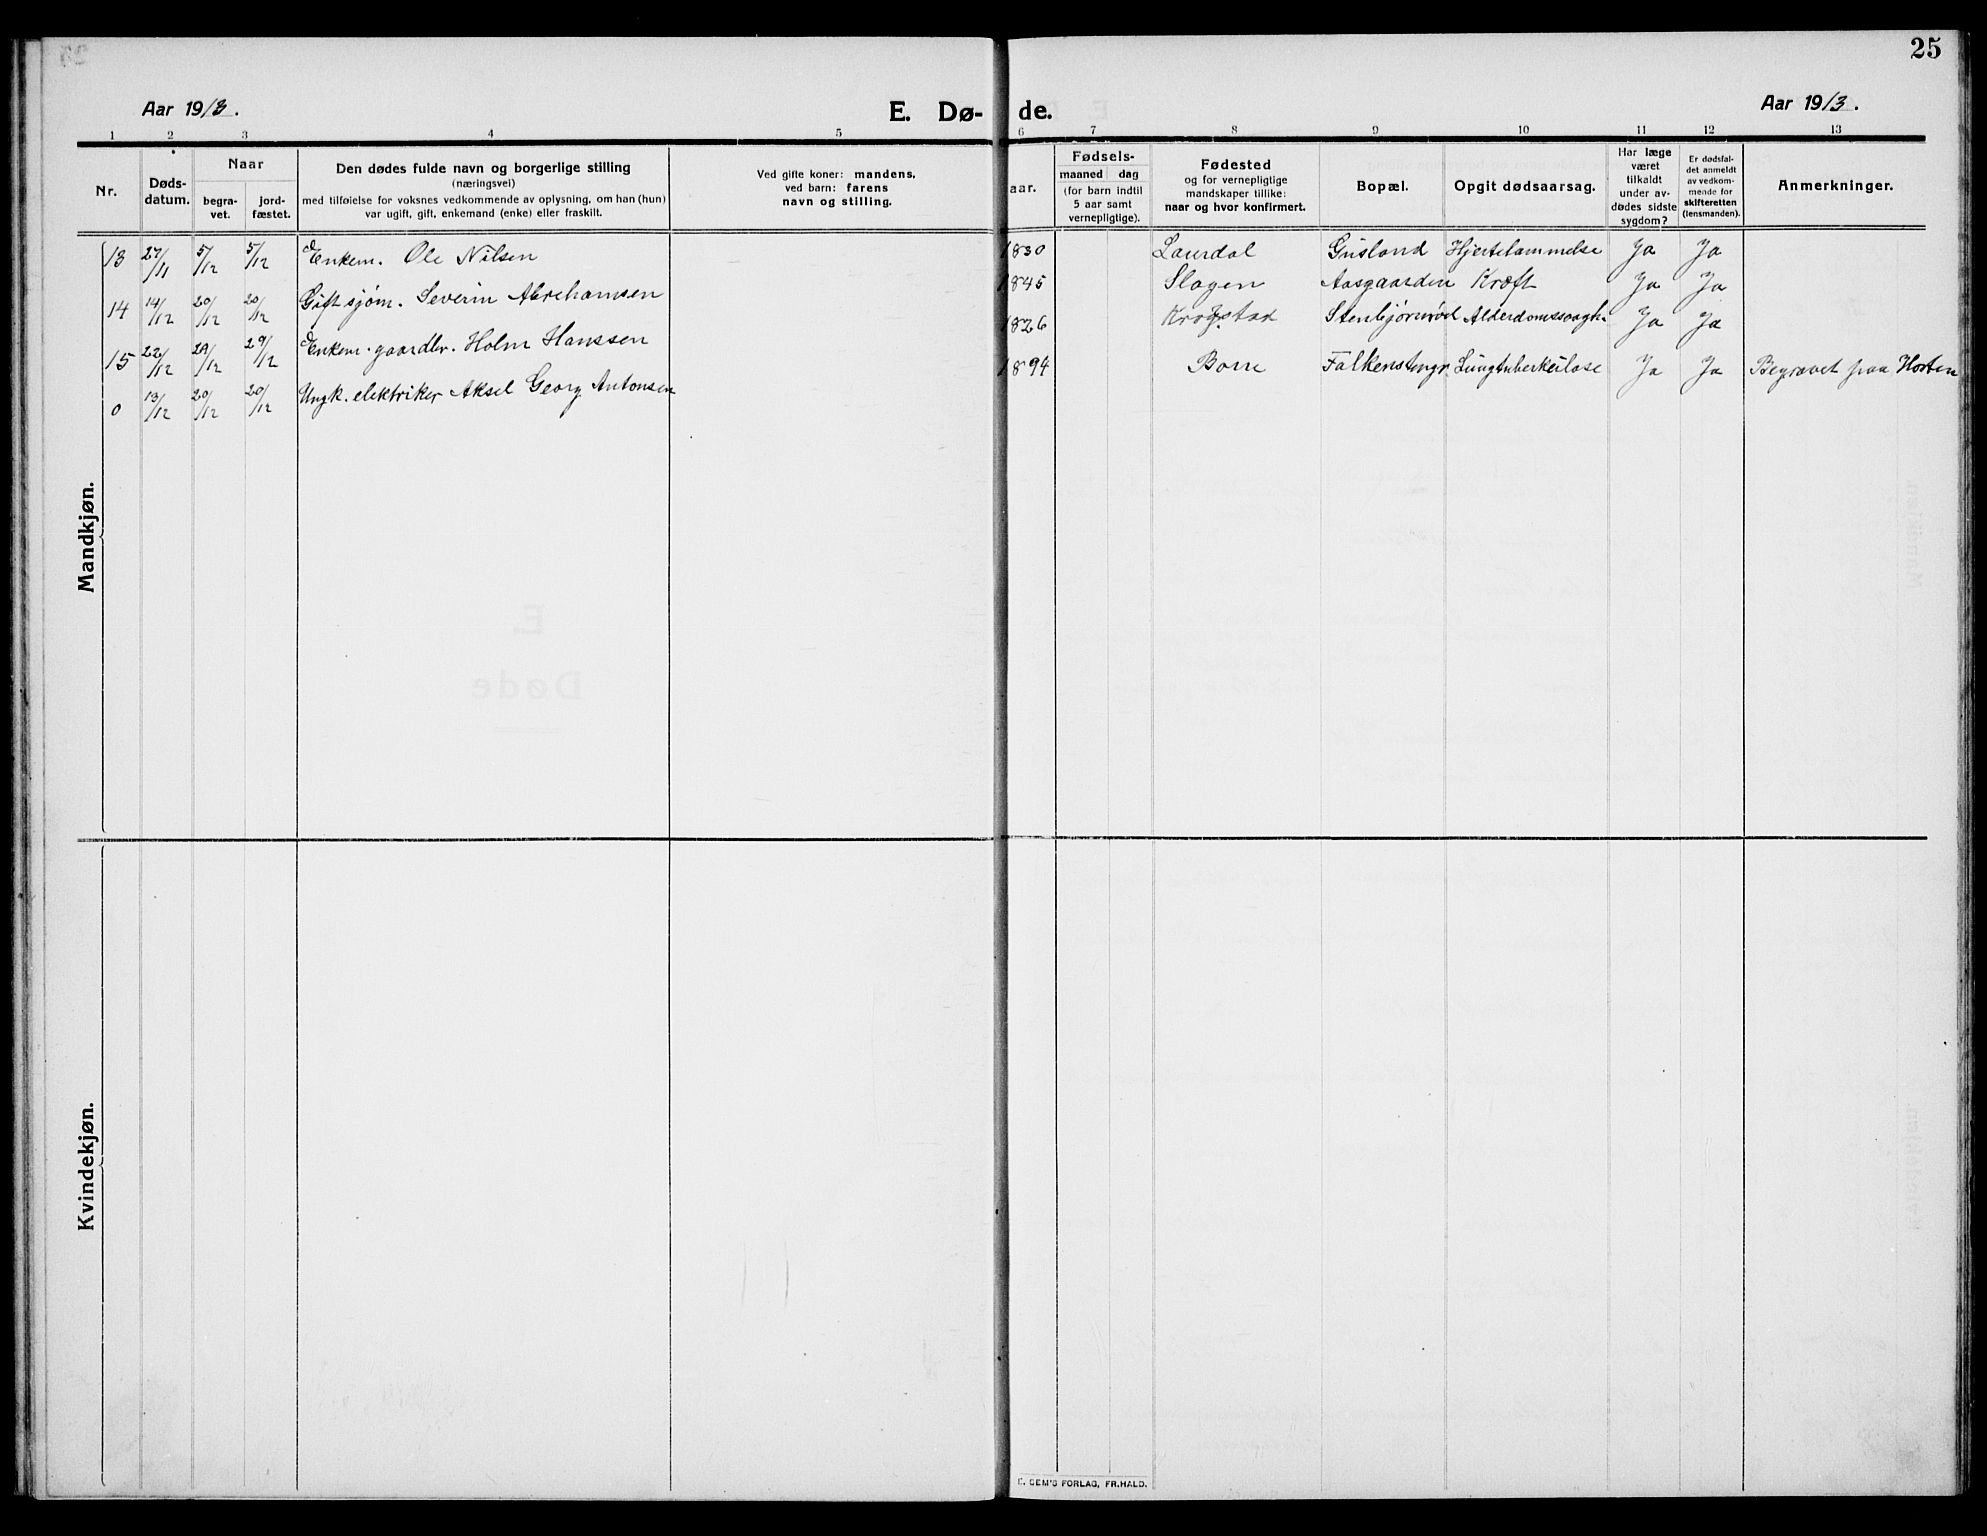 25
Aar 1913.
E. Dø- de.
Aar 1913.
1 2 3 4 5 6 7 8 9 10 11 12 13
Nr.
Døds-
datum.
Naar
begra-
vet.
jord-
fæstet.
Den dødes fulde navn og borgerlige stilling
(næringsvei)
med tilføielse for voksnes vedkommende av oplysning, om han (hun)
var ugift, gift, enkemand (enke) eller fraskilt.
Ved gifte koner: mandens,
ved barn: farens
navn og stilling.
aar.
Fødsels-
maaned dag
(for barn indtil
5 aar samt
vernepligtige).
Fødested
og for vernepligtige
mandskaper tillike:
naar og hvor konfirmert.
Bopæl.
Opgit dødsaarsag.
Har læge
været
tilkaldt
under av-
dødes sidste
sygdom?
Er dødsfal-
det anmeldt
av vedkom-
mende for
skifteretten
(lensmanden).
Anmerkninger.
Mandkjøn.
13 27/11 5/12 5/12 Enkem. Ole Nilsen 1830 Laurdal Grisland Hjertelammelse Ja Ja
14 14/12 20/12 20/12 Gift sjøm. Severin Abrehamsen 1845 Slagen Aasgaarden Kræft Ja Ja
15 22/12 29/12 29/12 Enkem. gaardbr. Holm Hanssen 1826 Krogstad Stenbjørnrød Alderdomssvagh. Ja Ja
0 13/12 20/12 20/12 Ungk. elektriker Aksel Georg Antonsen 1894 Borre Falkenstengr Lungtuberkulose Ja Ja Begravet paa Horten
Kvindekjøn.
E. SEM'S FORLAG, FR.HALD.